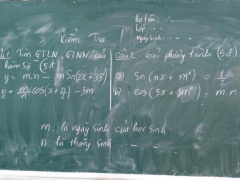 Kiểm Tra
Họ tên: ...
Lớp: ...
Ngày sinh: ...
Câu 1: Tìm GTLN, GTNN của
hàm số (5đ)
y = m.n - sin(2x + 35)
y = m/n cos(x + π/2) - 3m
Câu 2: Giải phương trình (5đ)
a) Sin(nx + m°) = 1/2
b) cos(5x + 3m°) = m.n
m là ngày sinh của học sinh
n là tháng sinh